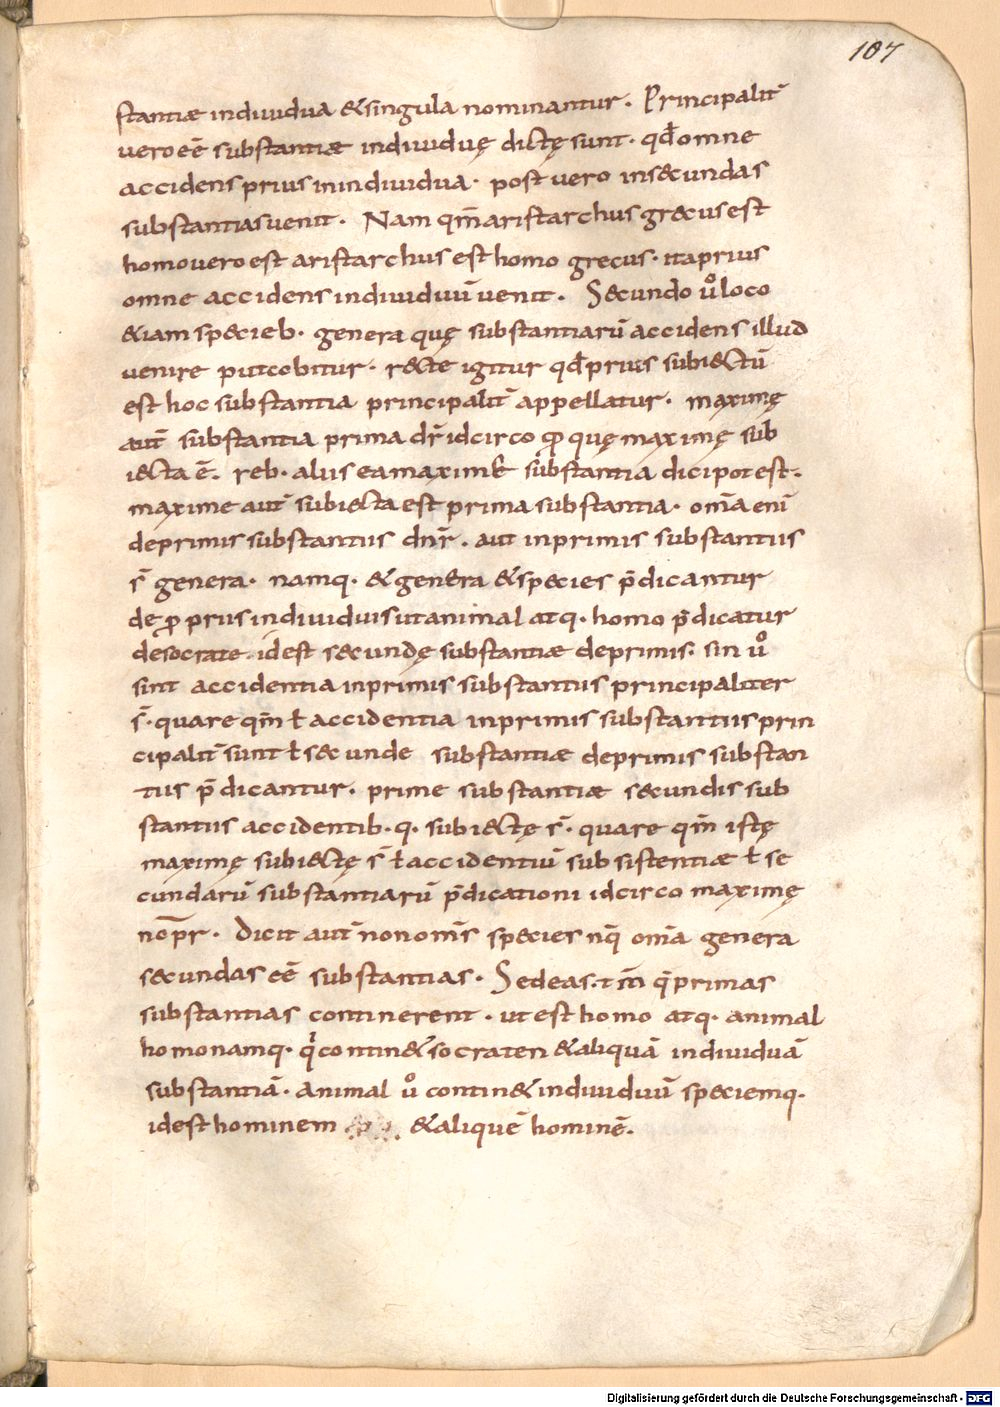 107
stantiae indiuidua &singula nominantur. Principalit̄
uero eē substantiae indiuiduę dictę sunt. qd̄ omne
accidens prius inindiuidua. post uero insecundas
substantias uenit. Nam qm̄ aristarchus grecus est
homo uero est aristarchus est homo grecus. ita prius
omne accidens indiuiduū uenit. Secundo uͦ loco
&iam specieb. genera quę substantiarū accidens illud
uenire putcobitur. recte igitur qd̄ prius subiectū
est hoc substantia principalit̄ appellatur. maximę
aut̄ substantia prima dr̄ idcirco ꝓ quę maximę sub
iecta ē. reb. aliis ea maxime substantia dici potest.
maxime aut̄ subiecta est prima substantia. om̄a enī
deprimis substantiis dnr̄. aut inprimis substantiis
s̄ genera. namq. &genera &species p̄dicantur
de ꝓpriis indiuiduis ut animal atq. homo p̄dicatur
desocrate. idest secundę substantiae deprimis. sin uͦ
sint accidentia inprimis substantiis principaliter
s̄. quare qm̄ ł accidentia inprimis substantiis prin
cipalit̄ sunt ł secunde substantiae deprimis substan
tiis p̄dicantur. prime substantiae secundis sub
stantiis accidentib. q. subiectę s̄. quare qm̄ istę
maximę subiectę s̄ ł accidentiū subsistentiae ł se
cundarū substantiarū p̄dicationi idcirco maximę
nop̄r. Dicit aut̄ non om̄s species nq̄ om̄a genera
secundas eē substantias. Sed eas. t m̄ q̄ primas
substantias continerent. ut est homo atq. animal
homo namq. qͥ contin& socraten &aliquā indiuiduā
substantiā. animal uͦ contin& indiuiduū speciemq.
idest hominem &aliquē hominē.
Digitalisierung gefördert durch die Deutsche Forschungsgemeinschaft - DFG